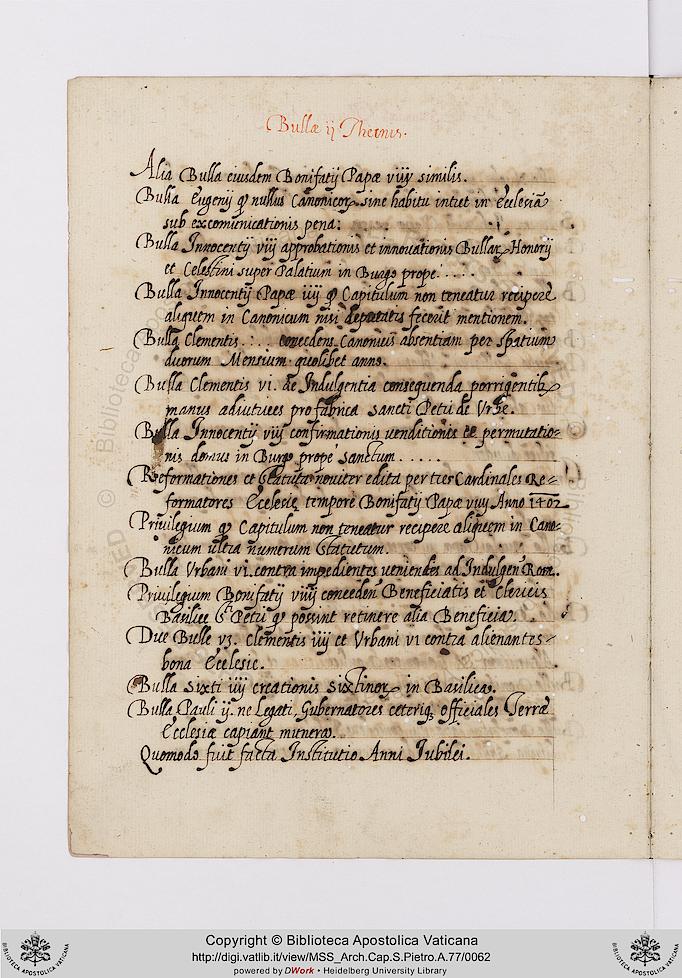 Bullæ ij Thecnis.
Alia Bulla eiusdem Bonifatij Papæ viiij similis.
Bulla Eugenij qꝫ nullus Canonicoꝝ sine habitu intret in Ecclesiã
sub excomunicationis pena:
Bulla Innocentij viij approbationis et innovationis Bullaꝝ Honorij
et Celestini super Palatium in Burgo prope.....
Bulla Innocentij Papæ iiij qꝫ Capitulum non teneatur recipere
aliquem in Canonicum nisi fecerit mentionem.
Bulla Clementis .:.. concedens Canonicis absentiam per spatium
duorum Mensium quolibet anno.
Bulla Clementis vi. de Indulgentia consequenda porrigentibꝫ
manus adiutrices pro fabrica sancti Petri de Urbe.
Bulla Innocentij viij confirmationis venditionis et permutatio=
nis domus in Burgo prope sanctum.....
Reformationes et Statuta noviter edita per tres Cardinales Re=
formatores Ecclesie tempore Bonifatij Papæ viiij Anno 1402
Privilegium qꝫ Capitulum non teneatur recipere aliquem in Cano=
nicum ultra numerum Statutum.
Bulla Urbani vi. contra impedientes venientes ad Indulgen Rom.
Privilegium Bonifatij viiij conceden Beneficiatis et Clericis
Basilice Sti Petri qꝫ possint retinere alia Beneficia.
Due Bulle vz. Clementis iiij et Urbani vi contra alienantes
bona Ecclesie.
Bulla Sixti iiij creationis sixtinoꝝ in Basilica.
Bulla Pauli ij. ne Legati, Gubernatores ceteriqꝫ officiales Terræ
Ecclesiæ capiant munera.
Quomodo fuit facta Institutio Anni Iubilei.
Copyright © Biblioteca Apostolica Vaticana
http://digi.vatlib.it/view/MSS_Arch.Cap.S.Pietro.A.77/0062
powered by DWork • Heidelberg University Library